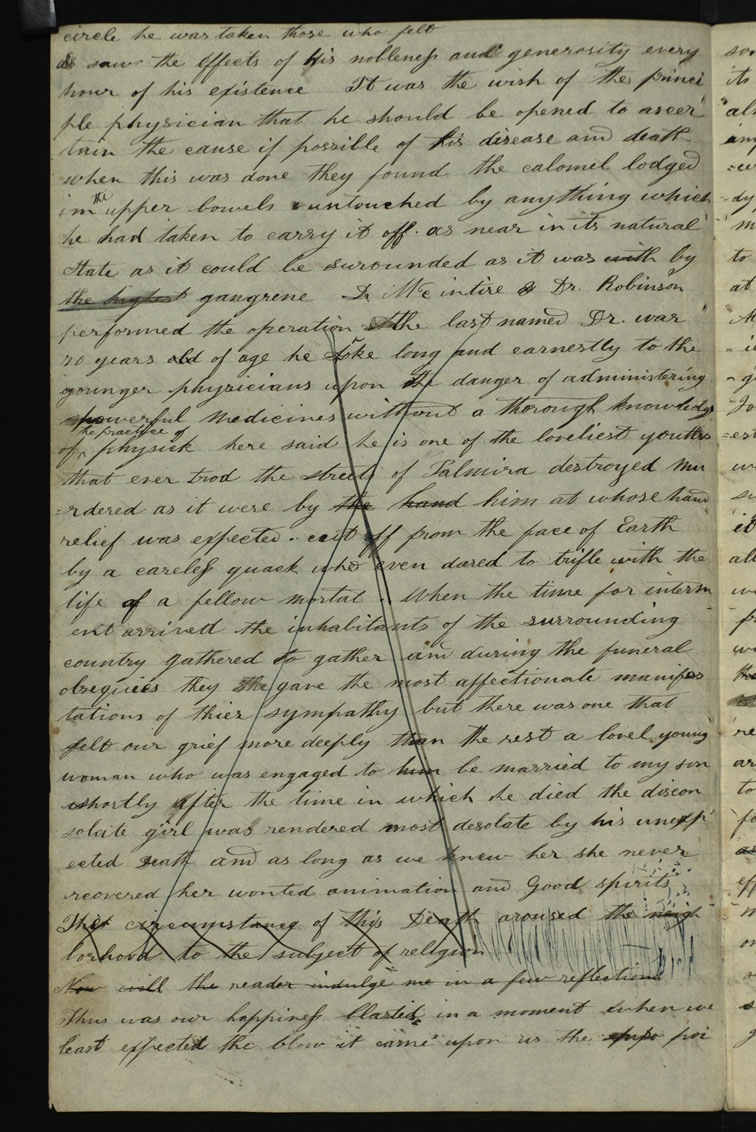 circle he was taken those who felt
& saw the effects of his nobleness and generosity every
hour of his existence It was the wish of the princi
ple physician that he should be opened to ascer
tain the cause if possible of his disease and death
when this was done they found the calomel lodged
in the upper bowels untouched by anything which
he had taken to carry it off. as near in its natural
state as it could be surounded as it was with by
the highest gangrene Dr Mc intire & Dr. Robinson
performed the operation the last named Dr. was
70 years old of age he spoke long and earnestly to the
younger physicians upon the danger of administering
powerful medicines without a thorough knowledg
of the practice of physick here said he is one of the loveliest youths
that ever trod the streets of Palmira destroyed mu
rdered as it were by the hand him at whose hand
relief was expected. cast off from the face of Earth
by a careless quack who even dared to trifle with the
life of a fellow mortal. When the time for interm
ent arrived the inhabitants of the surrounding
country gathered to gather and during the funeral
obsequies they gave the most affectionate manifes
tations of thier sympathy but there was one that
felt our grief more deeply than the rest a lovel young
woman who was engaged to him be married to my son
shortly after the time in which he died the discon
solate girl was rendered most desolate by his unexp
ected death and as long as we knew her she never
recovered her wonted animation and Good spirits
The circumstance of this Death aroused the neigh
borhood to the subject of religion
Now will the reader indulge me in a few reflections
Thus was our happiness blasted in a moment when we
least expected the blow it came upon us the poi